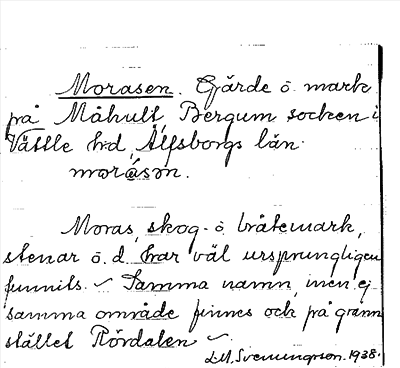 Morasen. Gärde o. mark
på Måhult, Bergum socken i
Vättle hrd, Älfsborgs län.
moråsən.
Moras, skog- o. bråtemark,
stenar o. d. har väl ursprungligen
funnits. Samma namn, men ej
samma område finnes och på grann
stället Rördalen
L.M. Svenungson. 1938.